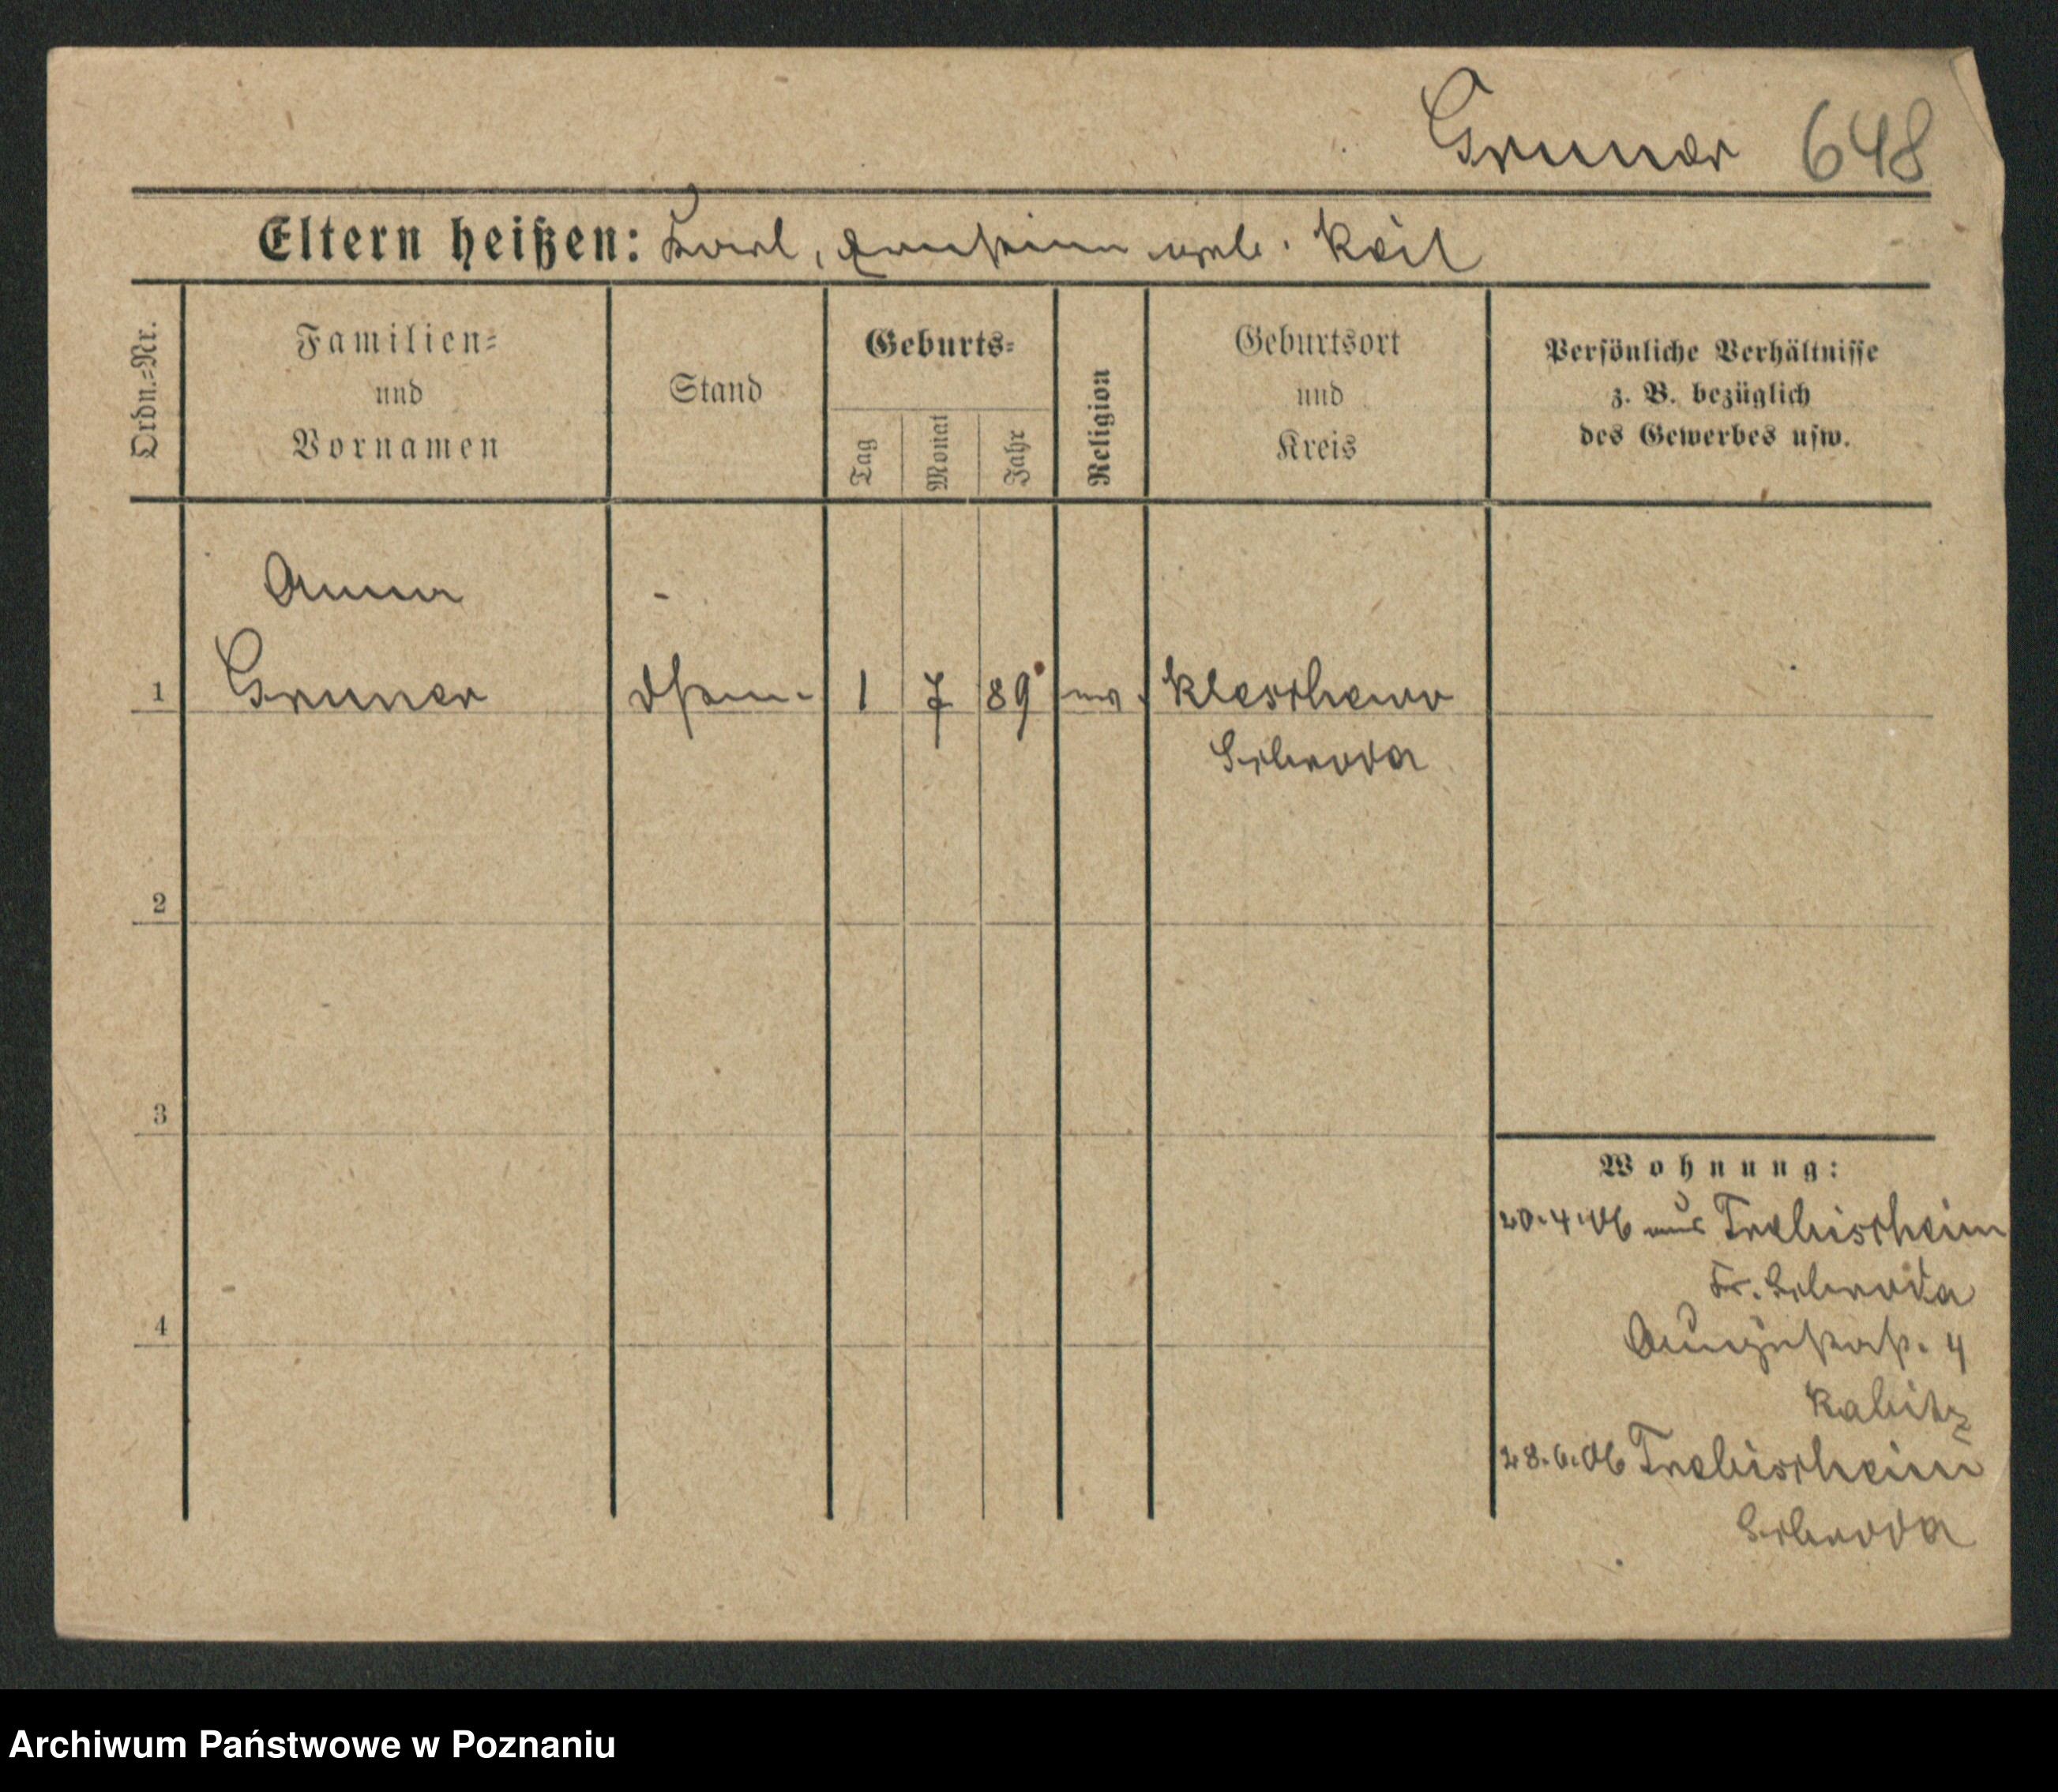 Gruner 648
Eltern heißen: Karl, Ernstine geb. Keil
Ordn.=Nr.
Familien=
und
Vornamen
Stand
Geburts=
Tag
Monat
Jahr
Religion
Geburtsort
und
Kreis
Persönliche Verhältnisse
z. B. bezüglich
des Gewerbes usw.
Anna
1 Gruner 1 7 89 ev.
Schroda
2
3
4
Wohnung:
20.4.06 aus Trebisheim
Kr. Schroda
4
Kabitz
28.6.06 Trebisheim
Schroda
Archiwum Państwowe w Poznaniu